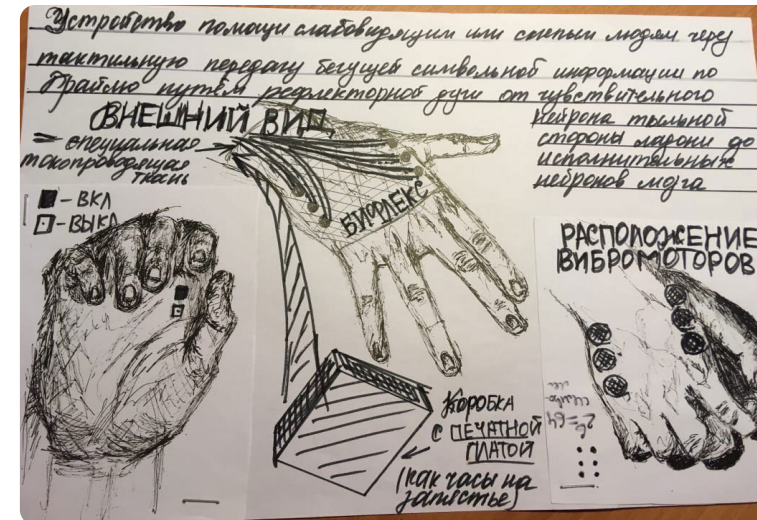 Устройство помощи слабовидящим или слепым людям через
тактильную передачу бегущей символьной информации по
Брайлю путём рефлекторной дуги от чувствительного
нейрона тыльной
стороны ладони до
исполнительных
нейронов мозга
ВНЕШНИЙ ВИД
= специальная
токопроводящая
ткань
- ВКЛ
- ВЫКЛ
БИФЛЕКС
РАСПОЛОЖЕНИЕ
ВИБРОМОТОРОВ
2⁶=64
КОРОБКА
С ПЕЧАТНОЙ
ПЛАТОЙ
(как часы на
запястье)